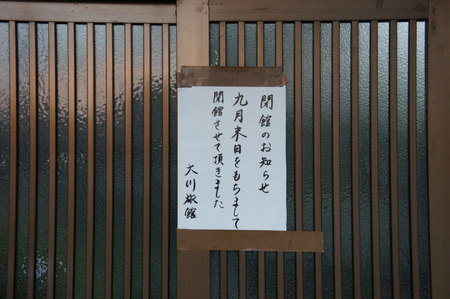 閉館のお知らせ
九月末日をもちまして
閉館させて頂きました
大川旅館